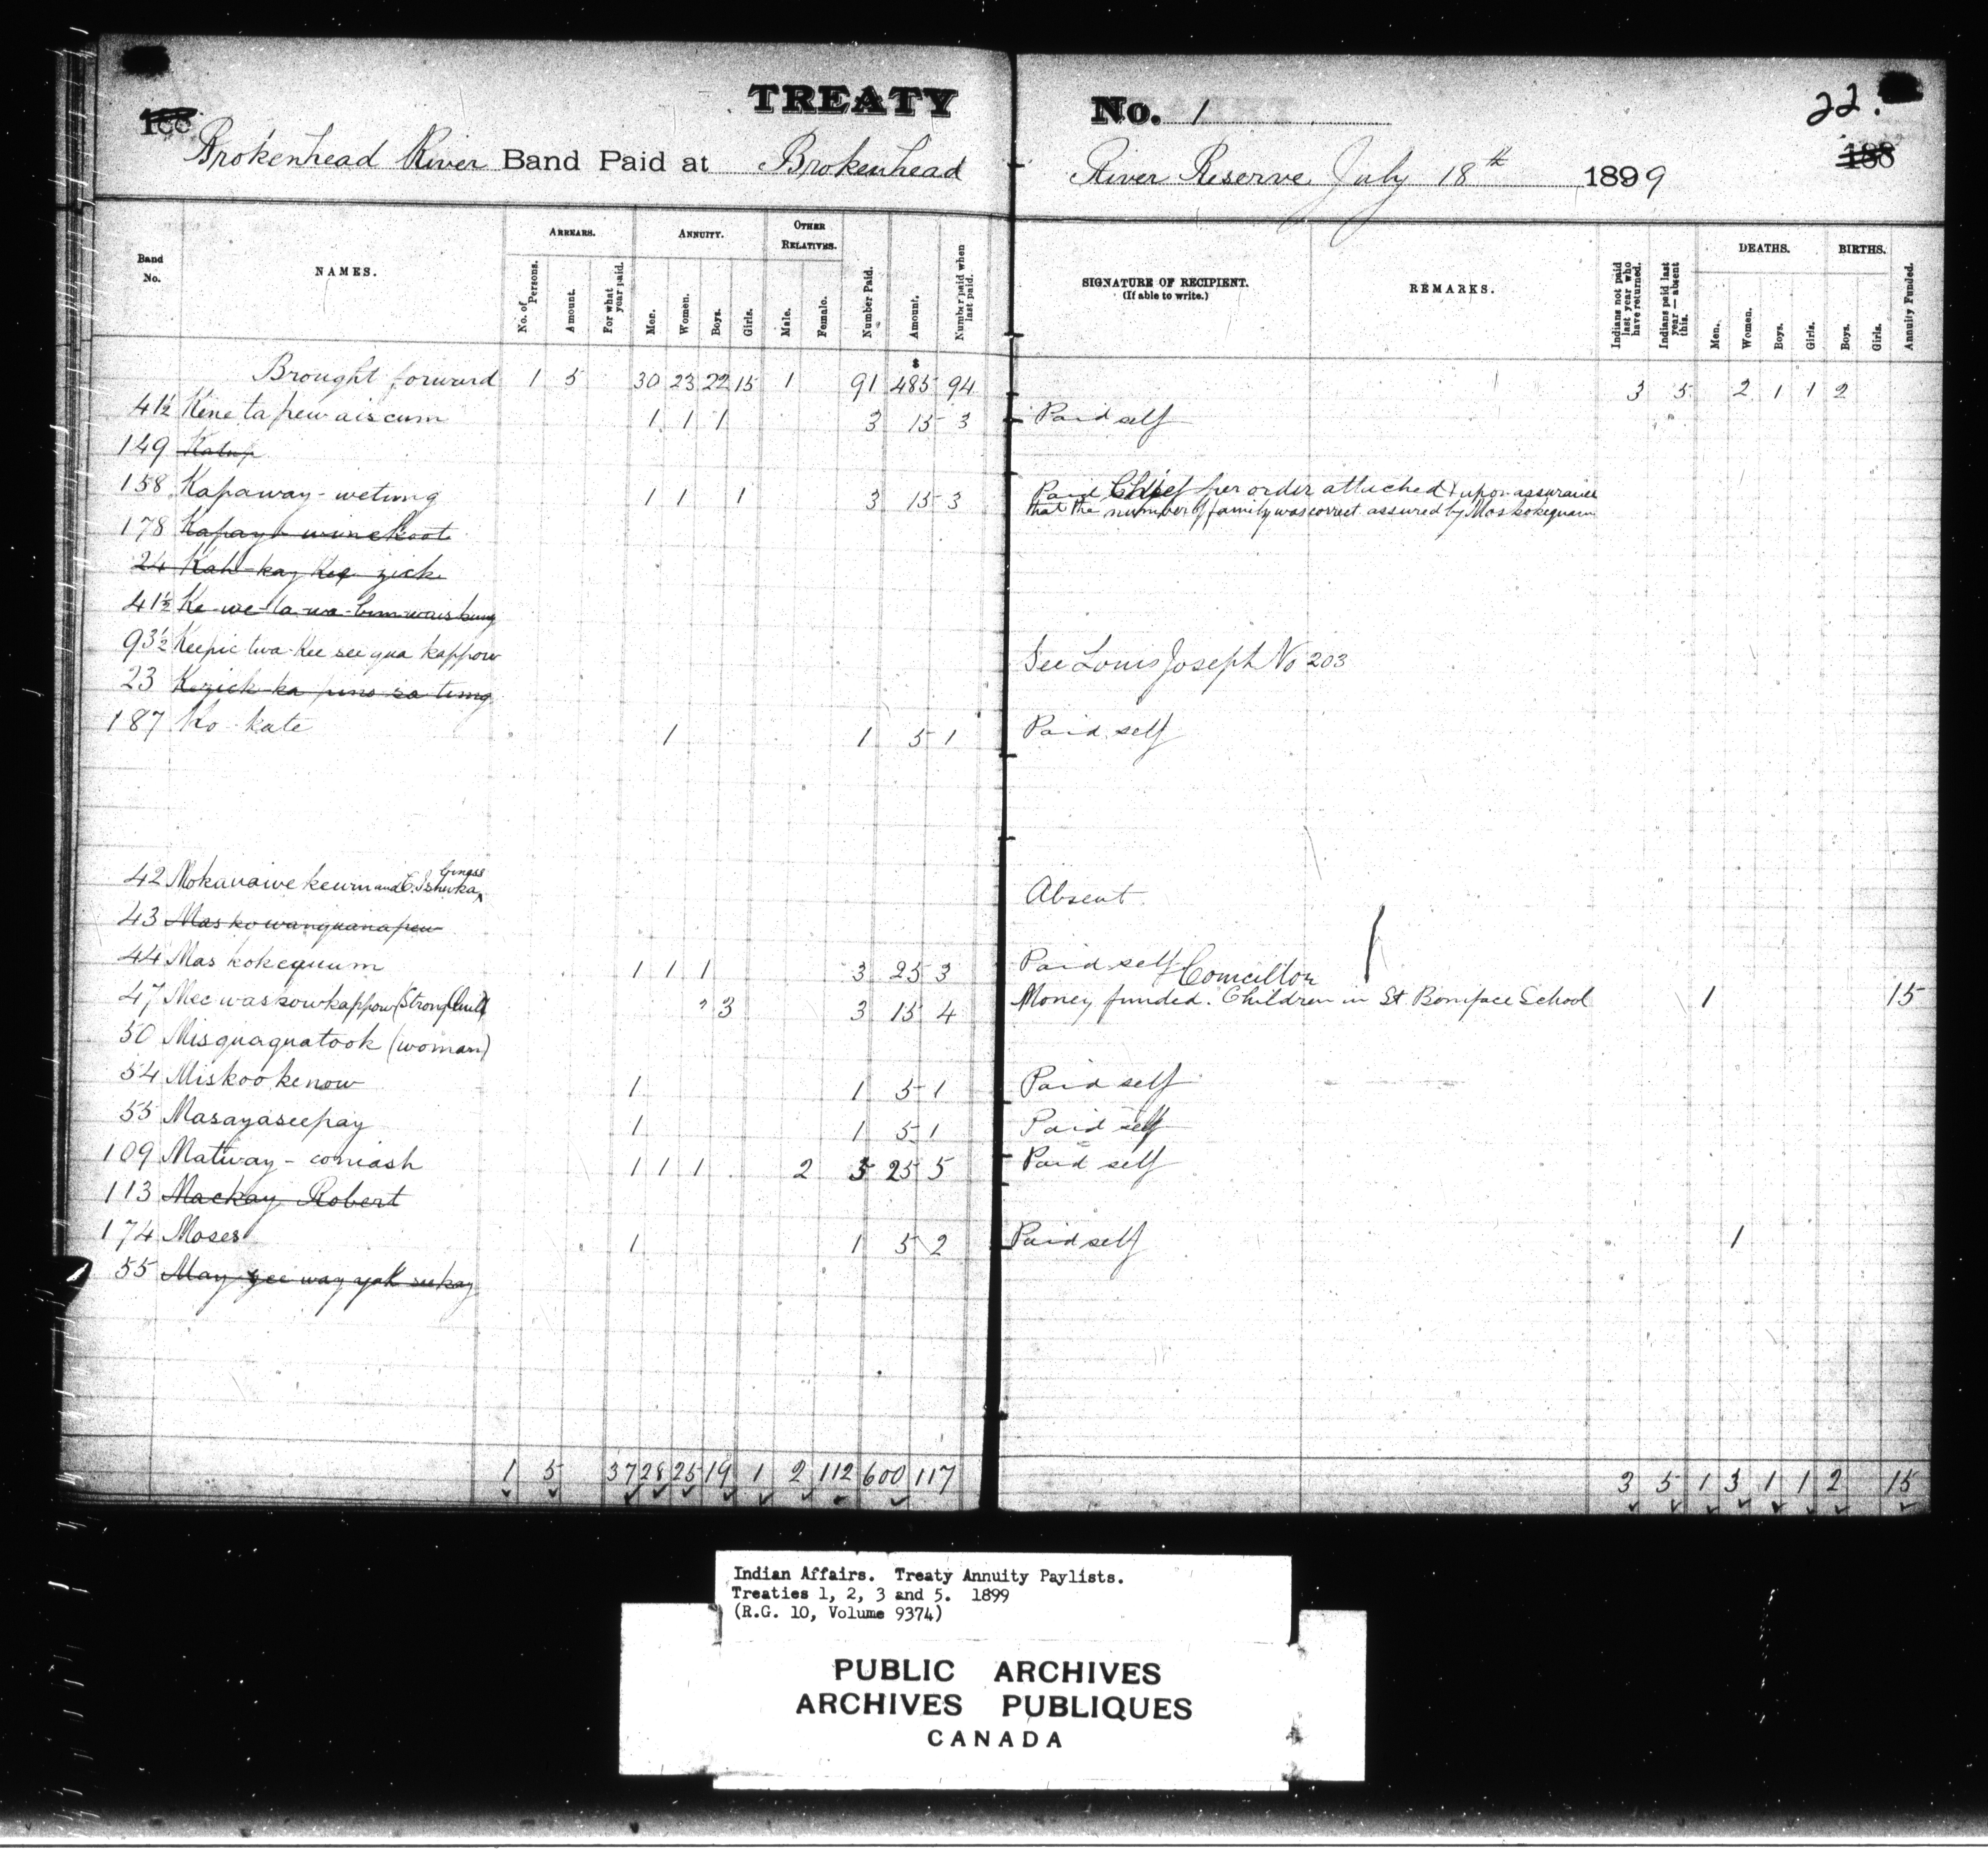 TREATY No. 1 22.
188 188
Brokenhead River Band Paid at Brokenhead River Reserve July 18th 1899
Band No. NAMES. ARREARS. No. of Persons. Amount. For what year paid. ANNUITY. Men. Women. Boys. Girls. OTHER RELATIVES. Male. Female. Number Paid. Amount. Number paid when last paid. SIGNATURE OF RECIPIENT. (If able to write.) REMARKS. Indians not paid last year who have returned. Indians paid last year—absent this. DEATHS. Men. Women. Boys. Girls. BIRTHS. Boys. Girls. Annuity Funded.
Brought forward 1 5 30 23 22 15 1 91 $485 94 3 5 2 1 1 2
41½ Kene ta pew aiscum 1 1 1 3 15 3 Paid self
149
158 Kapaway-wetung 1 1 1 3 15 3 Paid Chief per order attached & upon assurance
that the number of family was correct assured by Maskokequum
178
24 Kah-kay Kee zick
41½
93½ Keepic twa-Kee see qua kappow See Louis Joseph No 203
23
187 Ko-kate 1 1 5 1 Paid self
42 Absent
43 Maskowanquanapew
44 Maskokequum 1 1 1 3 25 3 Paid self Councillor
47 Mec waskowkappow (Strong Quill) 3 3 15 4 Money funded. Children in St. Boniface School 1 15
50 Misquaquatook (woman)
54 Miskookenow 1 1 5 1 Paid self
55 Masayaseepay 1 1 5 1 Paid self
109 Matway-comash 1 1 1 2 5 25 5 Paid self
113 Mackay Robert
174 Moses 1 1 5 2 Paid self 1
55 May gee way yak seekay
1 5 37 28 25 19 1 2 112 600 117 3 5 1 3 1 1 2 15
Indian Affairs. Treaty Annuity Paylists.
Treaties 1, 2, 3 and 5. 1899
(R.G. 10, Volume 9374)
PUBLIC ARCHIVES
ARCHIVES PUBLIQUES
CANADA